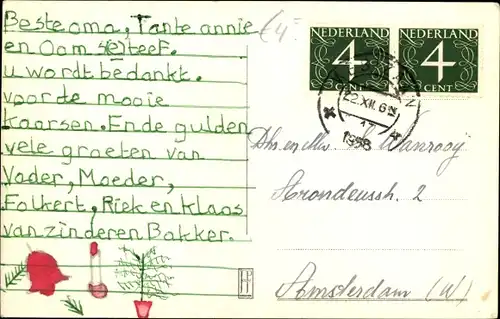 Beste oma, Tante annie
en Oom s(e)teef.
u wordt bedankt.
voor de mooie
kaarsen. En de gulden
vele groeten van
Vader, Moeder,
Folkert, Riek en Klaas
van zinderen Bakker.
£4=
NEDERLAND
4
CENT
NEDERLAND
4
CENT
22.XII.6
1958
Dhr en Mev. Wanrooy
Arondeusstr. 2
Amsterdam (W)